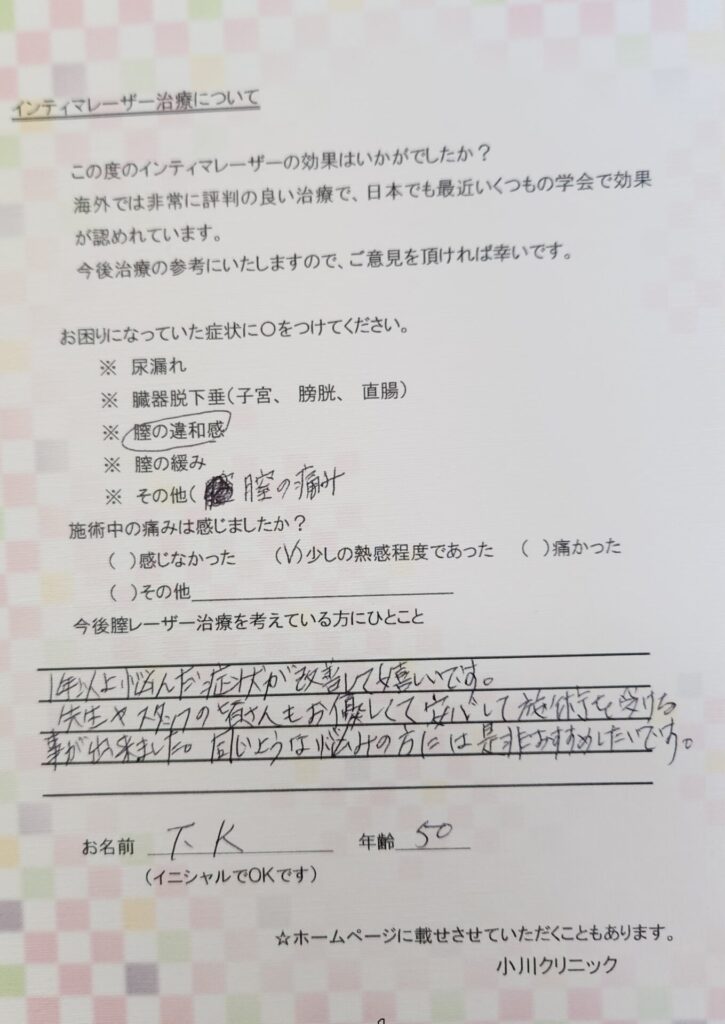 インティマレーザー治療について
この度のインティマレーザーの効果はいかがでしたか？
海外では非常に評判の良い治療で、日本でも最近いくつもの学会で効果
が認めれています。
今後治療の参考にいたしますので、ご意見を頂ければ幸いです。
お困りになっていた症状に〇をつけてください。
※ 尿漏れ
※ 臓器脱下垂（子宮、 膀胱、 直腸）
※ 膣の違和感
※ 膣の緩み
※ その他（ 膣の痛み
施術中の痛みは感じましたか？
（ ）感じなかった （✓）少しの熱感程度であった （ ）痛かった
（ ）その他
今後膣レーザー治療を考えている方にひとこと
1年以上悩んだ症状が改善して嬉しいです。
先生やスタッフの皆さんもお優しくて安心して施術を受ける
事が出来ました。同じような悩みの方には是非おすすめしたいです。
お名前 T.K 年齢 50
（イニシャルでOKです）
☆ホームページに載せさせていただくこともあります。
小川クリニック